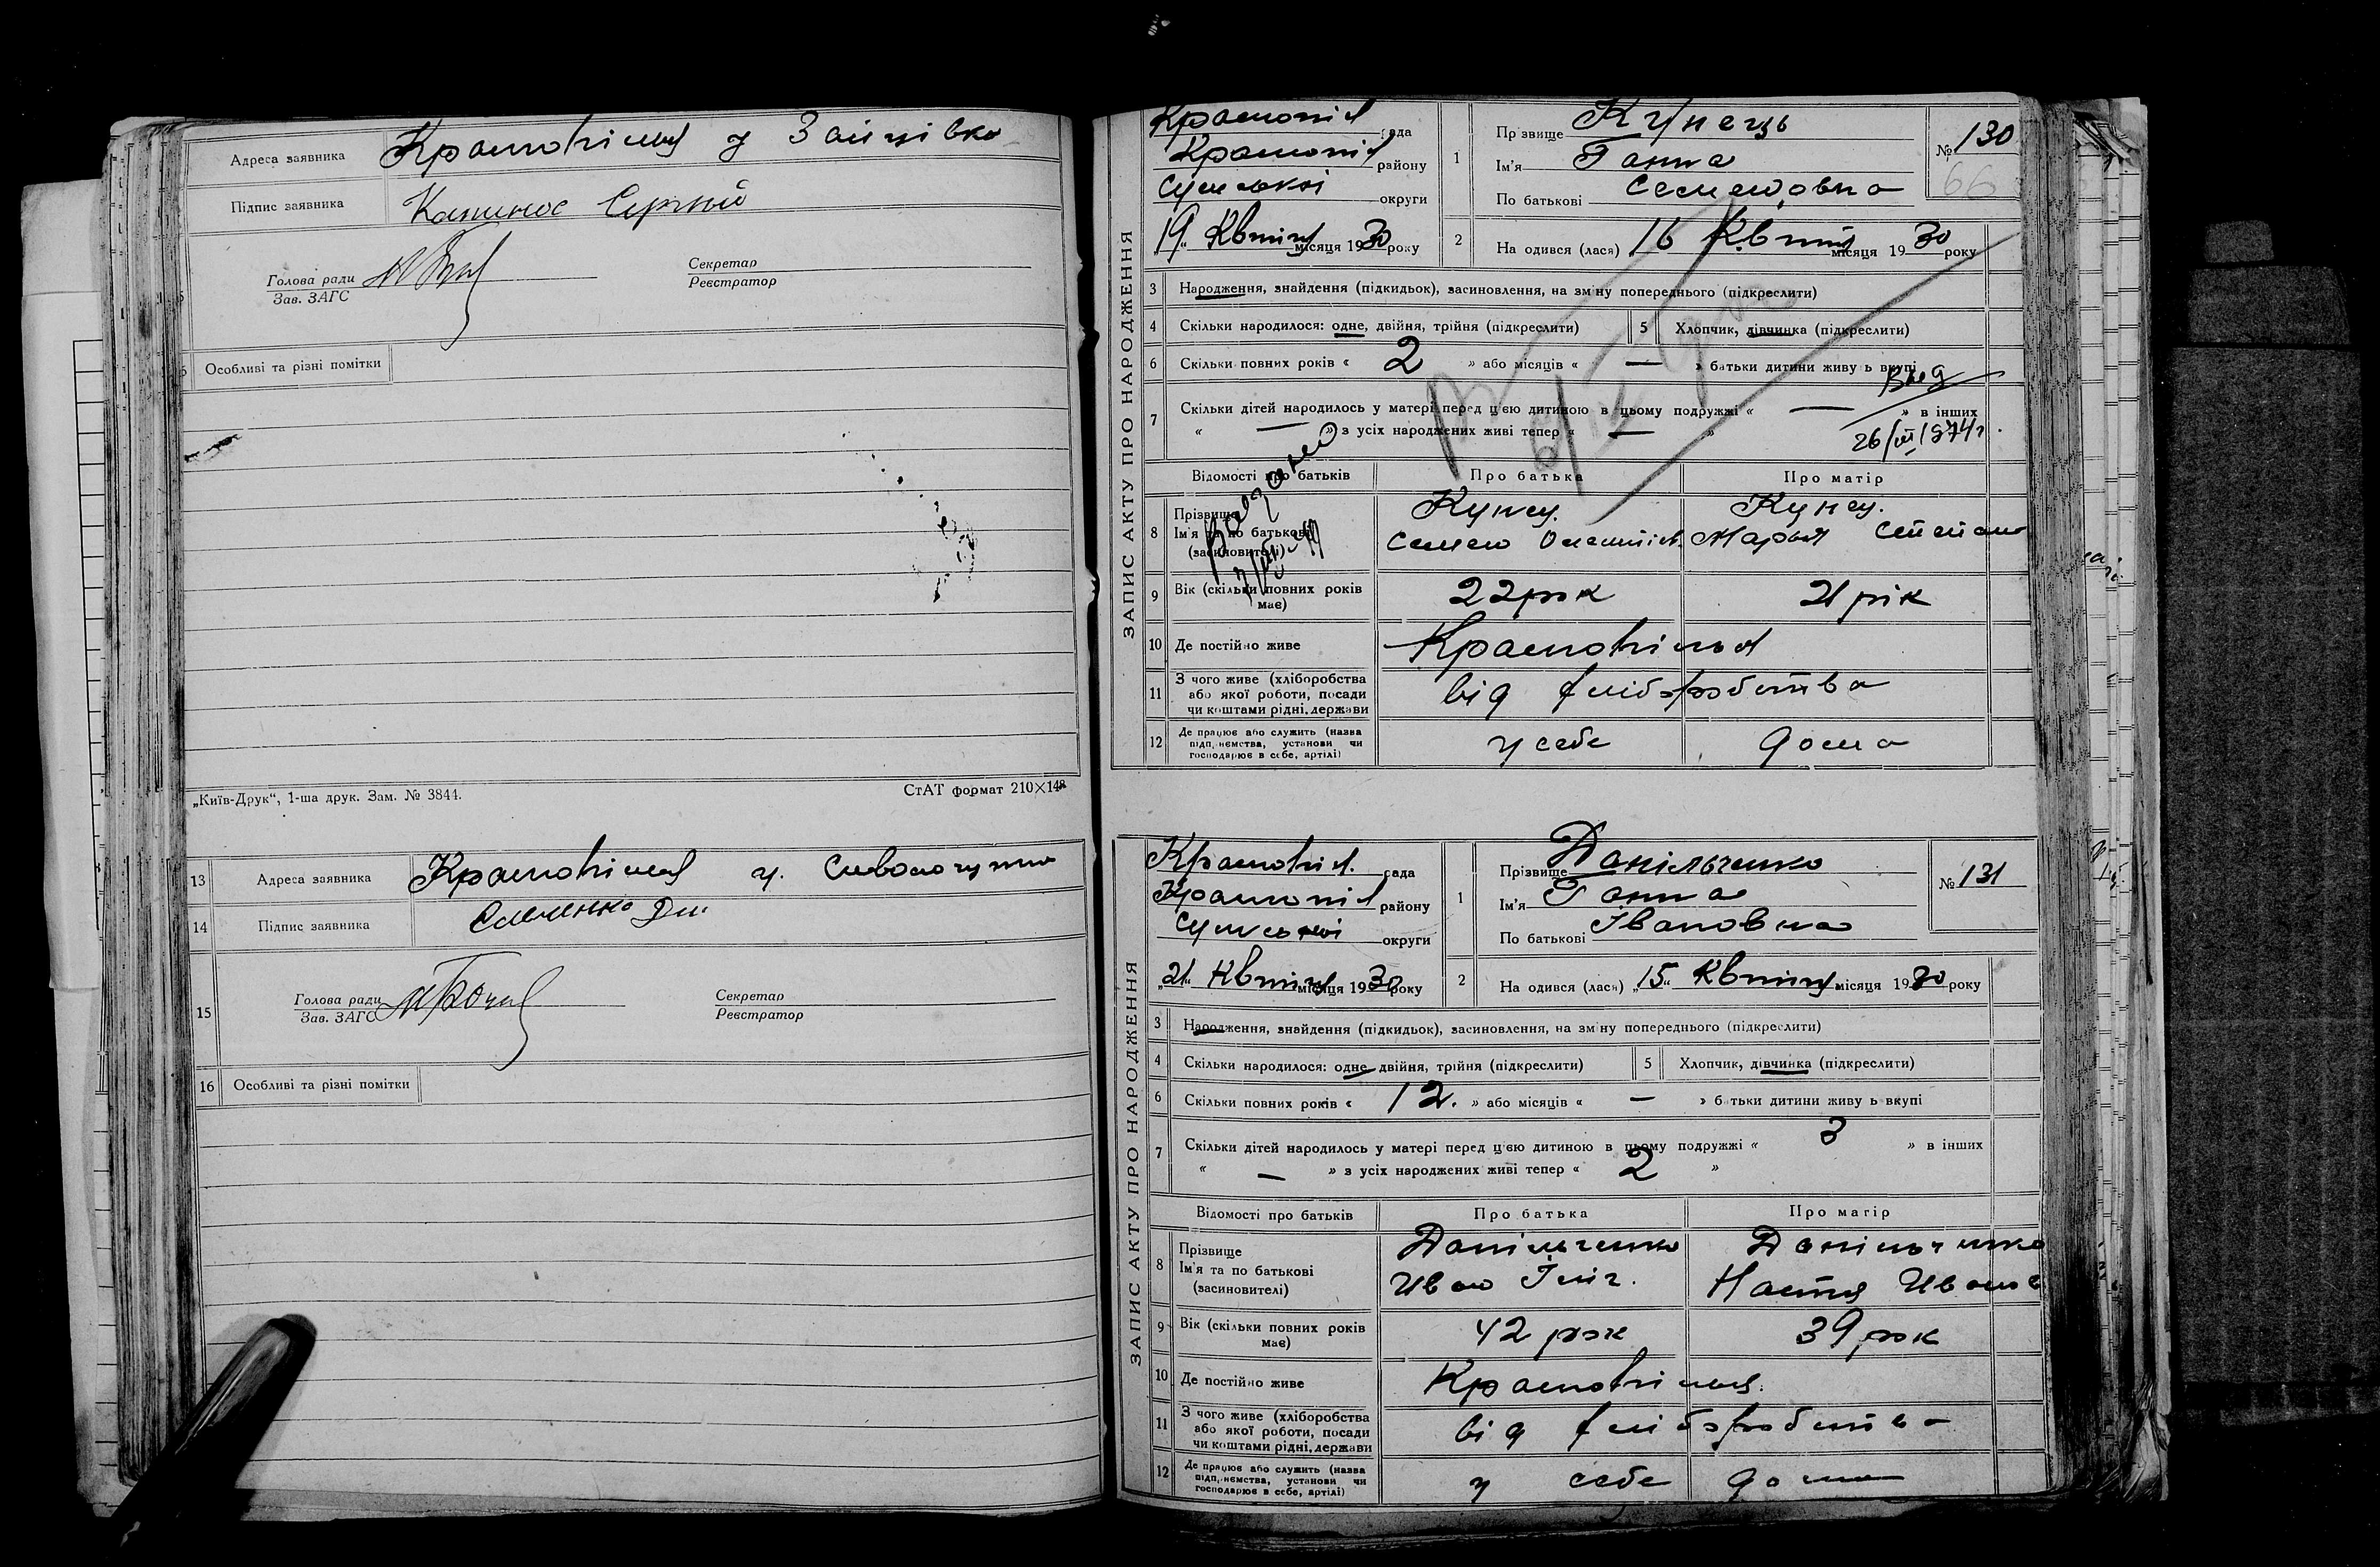 Адреса заявника Краснопілля у Заицівка
Підпис заявника
Голова ради
Зав. ЗАГС
Секретар
Реєстратор
Особливі та різні помітки
„Київ-Друк“, 1-ша друк. Зам. № 3844.
СтАТ формат 210×148
13 Адреса заявника Краснопілля у.
14 Підпис заявника
15 Голова ради
Зав. ЗАГС
Секретар
Реєстратор
16 Особливі та різні помітки
ЗАПИС АКТУ ПРО НАРОДЖЕННЯ
Краснопіл рада
Краснопіл району
Сумської округи
19 Квітня місяця 1930 року
1 Прізвище Кунець
Ім'я Ганна
По батькові Семеновна
№ 130
66
2 На одився (лася) 16 Квітня місяця 1930 року
3 Народження, знайдення (підкидьок), засиновлення, на зміну попереднього (підкреслити)
4 Скільки народилося: одне, двійня, трійня (підкреслити)
5 Хлопчик, дівчинка (підкреслити)
6 Скільки повних років « 2 » або місяців « — » батьки дитини живуть вкупі
7 Скільки дітей народилось у матері перед цією дитиною в цьому подружжі « — » в інших
« — » з усіх народжених живі тепер « — »
26/III 1974 г.
Відомості про батьків Про батька Про матір
8 Прізвище Кунец. Кунец.
Ім'я та по батькові Семен Марья Степан
(засиновителі)
9 Вік (скільки повних років має) 22 рок 21 рік
10 Де постійно живе Краснопілья
11 З чого живе (хліборобства або якої роботи, посади чи коштами рідні, держави від хліборобства
12 Де працює або служить (назва підприємства, установи чи господарює в себе, артілі) у себе дома
ЗАПИС АКТУ ПРО НАРОДЖЕННЯ
Краснопіл. рада
Краснопіл району
Сумської округи
„21“ Квітня місяця 1930 року
1 Прізвище Данільченко
Ім'я Ганна
По батькові Івановна
№ 131
2 На одився (лася) „15“ Квітня місяця 1930 року
3 Народження, знайдення (підкидьок), засиновлення, на зміну попереднього (підкреслити)
4 Скільки народилося: одне, двійня, трійня (підкреслити)
5 Хлопчик, дівчинка (підкреслити)
6 Скільки повних років « 12. » або місяців « — » батьки дитини живуть вкупі
7 Скільки дітей народилось у матері перед цією дитиною в цьому подружжі « 3 » в інших
« — » з усіх народжених живі тепер « 2 »
Відомості про батьків Про батька Про матір
8 Прізвище Данільченко Данільченко
Ім'я та по батькові Иван Ілліч. Настя Иванов
(засиновителі)
9 Вік (скільки повних років має) 42 рок 39 рок
10 Де постійно живе Краснопілля.
11 З чого живе (хліборобства або якої роботи, посади чи коштами рідні, держави від хліборобства
12 Де працює або служить (назва підприємства, установи чи господарює в себе, артілі) у себе дома